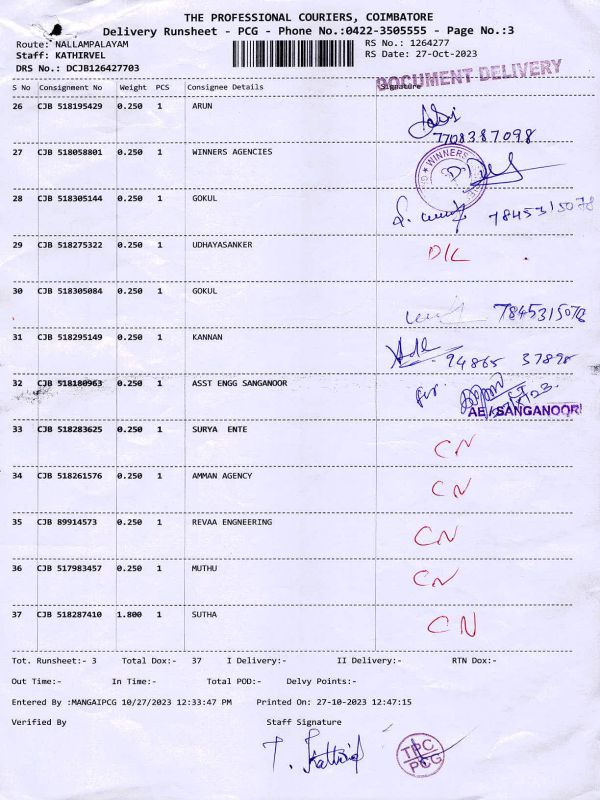 THE PROFESSIONAL COURIERS, COIMBATORE
Delivery Runsheet - PCG - Phone No.:0422-3505555 - Page No.:3
Route: NALLAMPALAYAM RS No.: 1264277
Staff: KATHIRVEL RS Date: 27-Oct-2023
DRS No.: DCJB126427703
DOCUMENT DELIVERY
S No Consignment No Weight PCS Consignee Details Signature
26 CJB 518195429 0.250 1 ARUN
7708387098
27 CJB 518058801 0.250 1 WINNERS AGENCIES
WINNERS
28 CJB 518305144 0.250 1 GOKUL 7845315078
29 CJB 518275322 0.250 1 UDHAYASANKER D/L
30 CJB 518305084 0.250 1 GOKUL 7845315078
31 CJB 518295149 0.250 1 KANNAN
94865 37898
32 CJB 518180963 0.250 1 ASST ENGG SANGANOOR
AE / SANGANOOR
33 CJB 518283625 0.250 1 SURYA ENTE CN
34 CJB 518261576 0.250 1 AMMAN AGENCY CN
35 CJB 89914573 0.250 1 REVAA ENGNEERING CN
36 CJB 517983457 0.250 1 MUTHU CN
37 CJB 518287410 1.800 1 SUTHA CN
Tot. Runsheet:- 3 Total Dox:- 37 I Delivery:- II Delivery:- RTN Dox:-
Out Time:- In Time:- Total POD:- Delvy Points:-
Entered By :MANGAIPCG 10/27/2023 12:33:47 PM Printed On: 27-10-2023 12:47:15
Verified By Staff Signature
T. Kathir
TPC
PCG